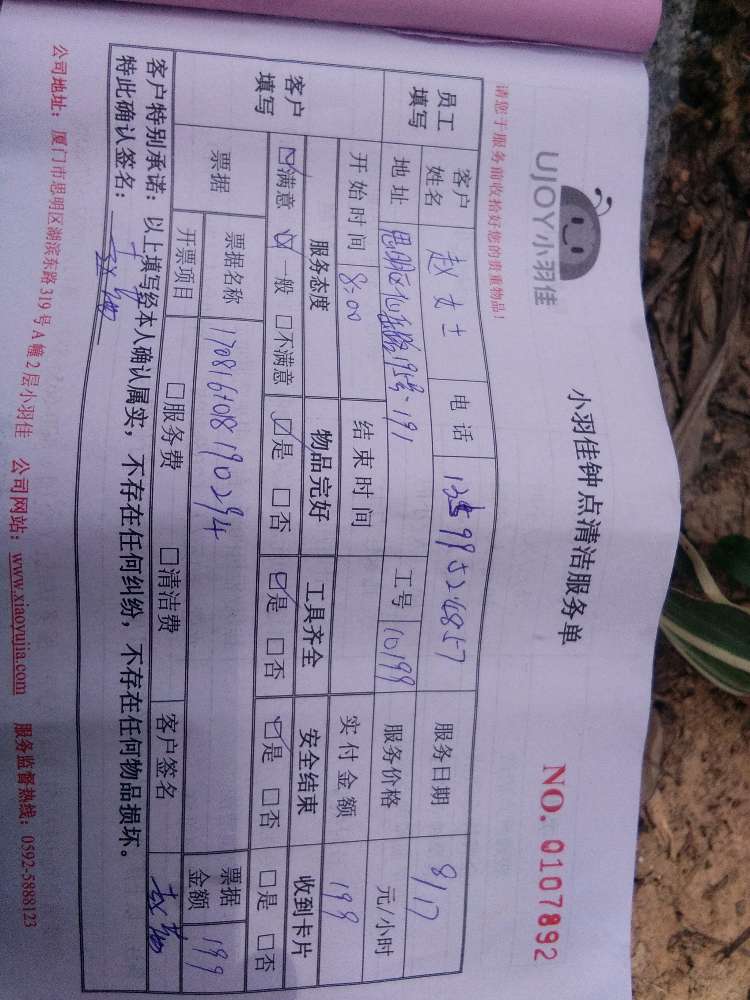 UJOY小羽佳
小羽佳钟点清洁服务单
NO. 0107892
请您于服务前收拾好您的贵重物品!
员工填写 客户姓名 赵女士 电话 13599524857 服务日期 8/17
地址 思明区 195号-191 工号 10199 服务价格 元/小时
开始时间 8:00 结束时间 实付金额 199
客户填写 服务态度 物品完好 工具齐全 安全结束 收到卡片
☑满意 ☑一般 □不满意 ☑是 □否 ☑是 □否 ☑是 □否 □是 □否
票据 票据名称 170816708190294 票据金额 199
开票项目 □服务费 □清洁费 客户签名
客户特别承诺:以上填写经本人确认属实,不存在任何纠纷,不存在任何物品损坏。
特此确认签名:
公司地址:厦门市思明区湖滨东路319号A幢2层小羽佳 公司网站:www.xiaoyujia.com 服务监督热线:0592-5888123